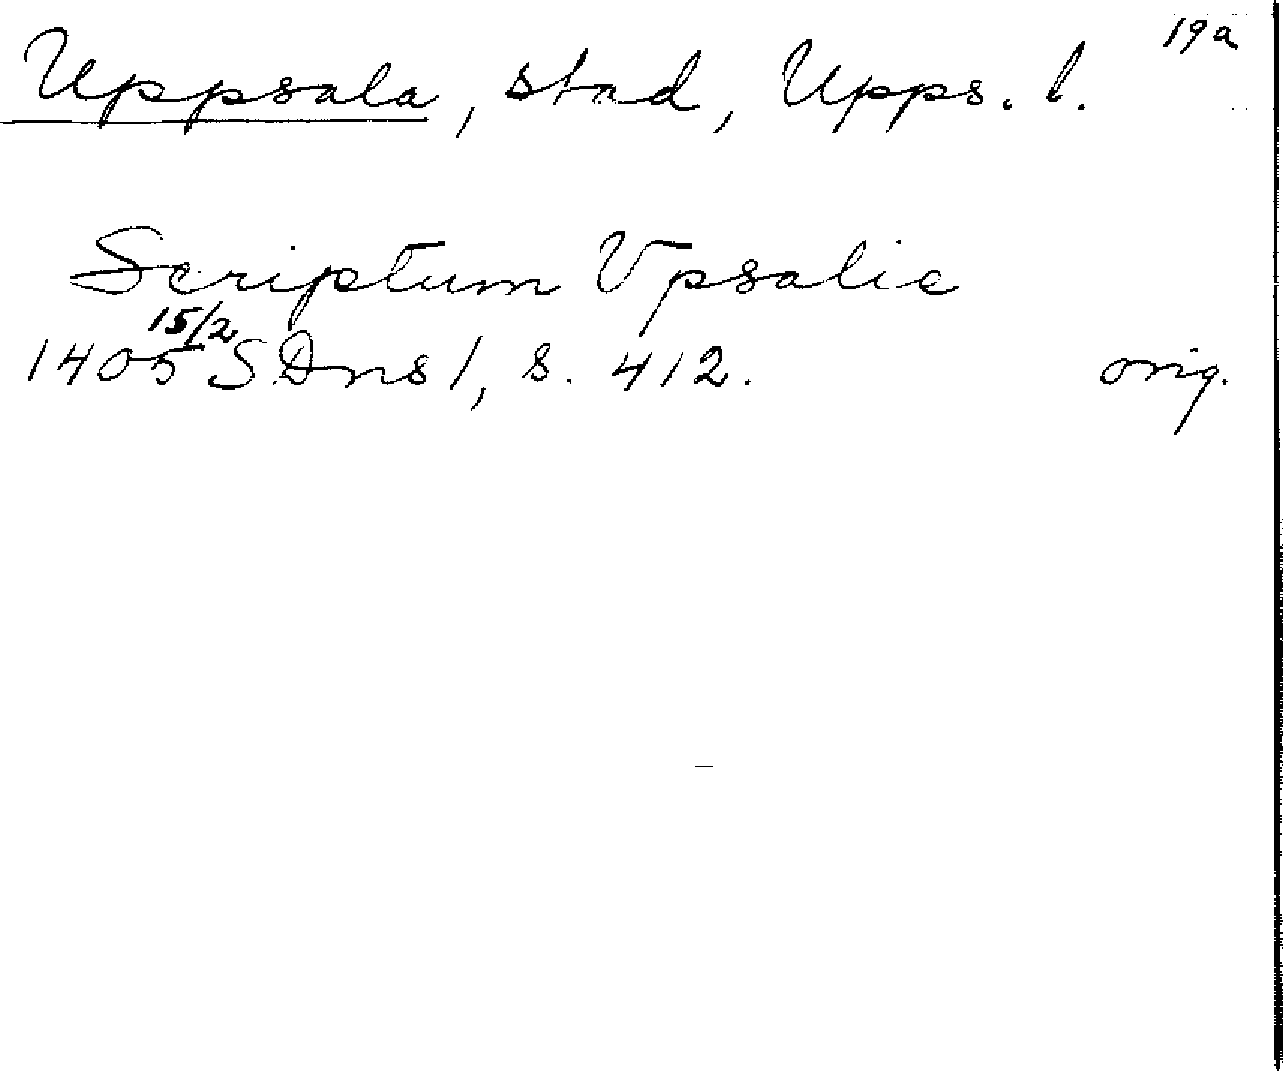 19a
Uppsala, stad, Upps. l.
Scriptum Vpsalie
15/2
1405 S.Dns 1, s. 412. orig.